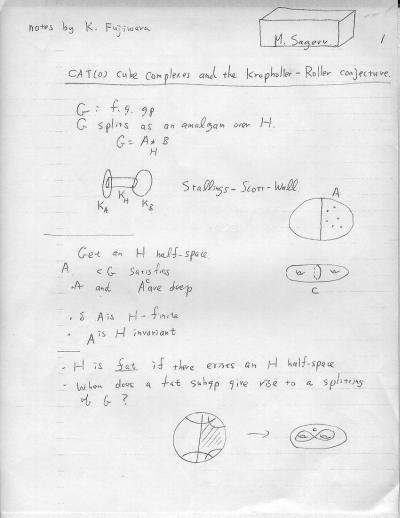 notes by K. Fujiwara
M. Sageev
1
CAT(0) Cube Complexes and the Kropholler-Roller conjecture.
G : f.g. gp
G splits as an amalgam over H.
G = A * B
H
K_A K_H K_B
Stallings-Scott-Wall.
A
Get an H half-space
A ⊂ G satisfies
A and A^c are deep
C
· δ A is H-finite
· A is H invariant
· H is fat if there exists an H half-space
· When does a fat subgp give rise to a splitting
of G ?
c